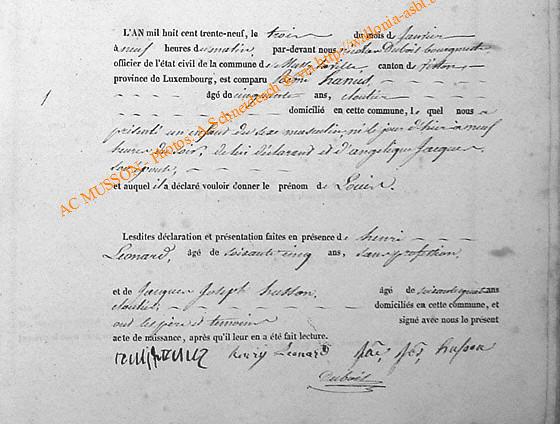 L'AN mil huit cent trente-neuf, le trois du mois de janvier
à neuf heures du matin, par-devant nous Nicolas Dubois bourgmestre
officier de l'état civil de la commune de Mussy la ville canton de Virton
province de Luxembourg, est comparu Remi hanus,
âgé de cinquante ans, cloutier
domicilié en cette commune, lequel nous a
présenté un enfant de sexe masculin né le jour d'hier à neuf
heures du soir, de lui déclarant et d'angelique Jacques
son épouse,
et auquel il a déclaré vouloir donner le prénom de Louis.
Lesdites déclaration et présentation faites en présence de henri
Leonard, âgé de soixante cinq ans, sans profession,
et de Jacques Joseph husson, âgé de soixante quatre ans
cloutier, domiciliés en cette commune, et
ont les père et témoins signé avec nous le présent
acte de naissance, après qu'il leur en a été fait lecture.
henry Leonard husson
Dubois
AC MUSSON - Photos. A Schmetzbach © via http://wallonia-asbl.